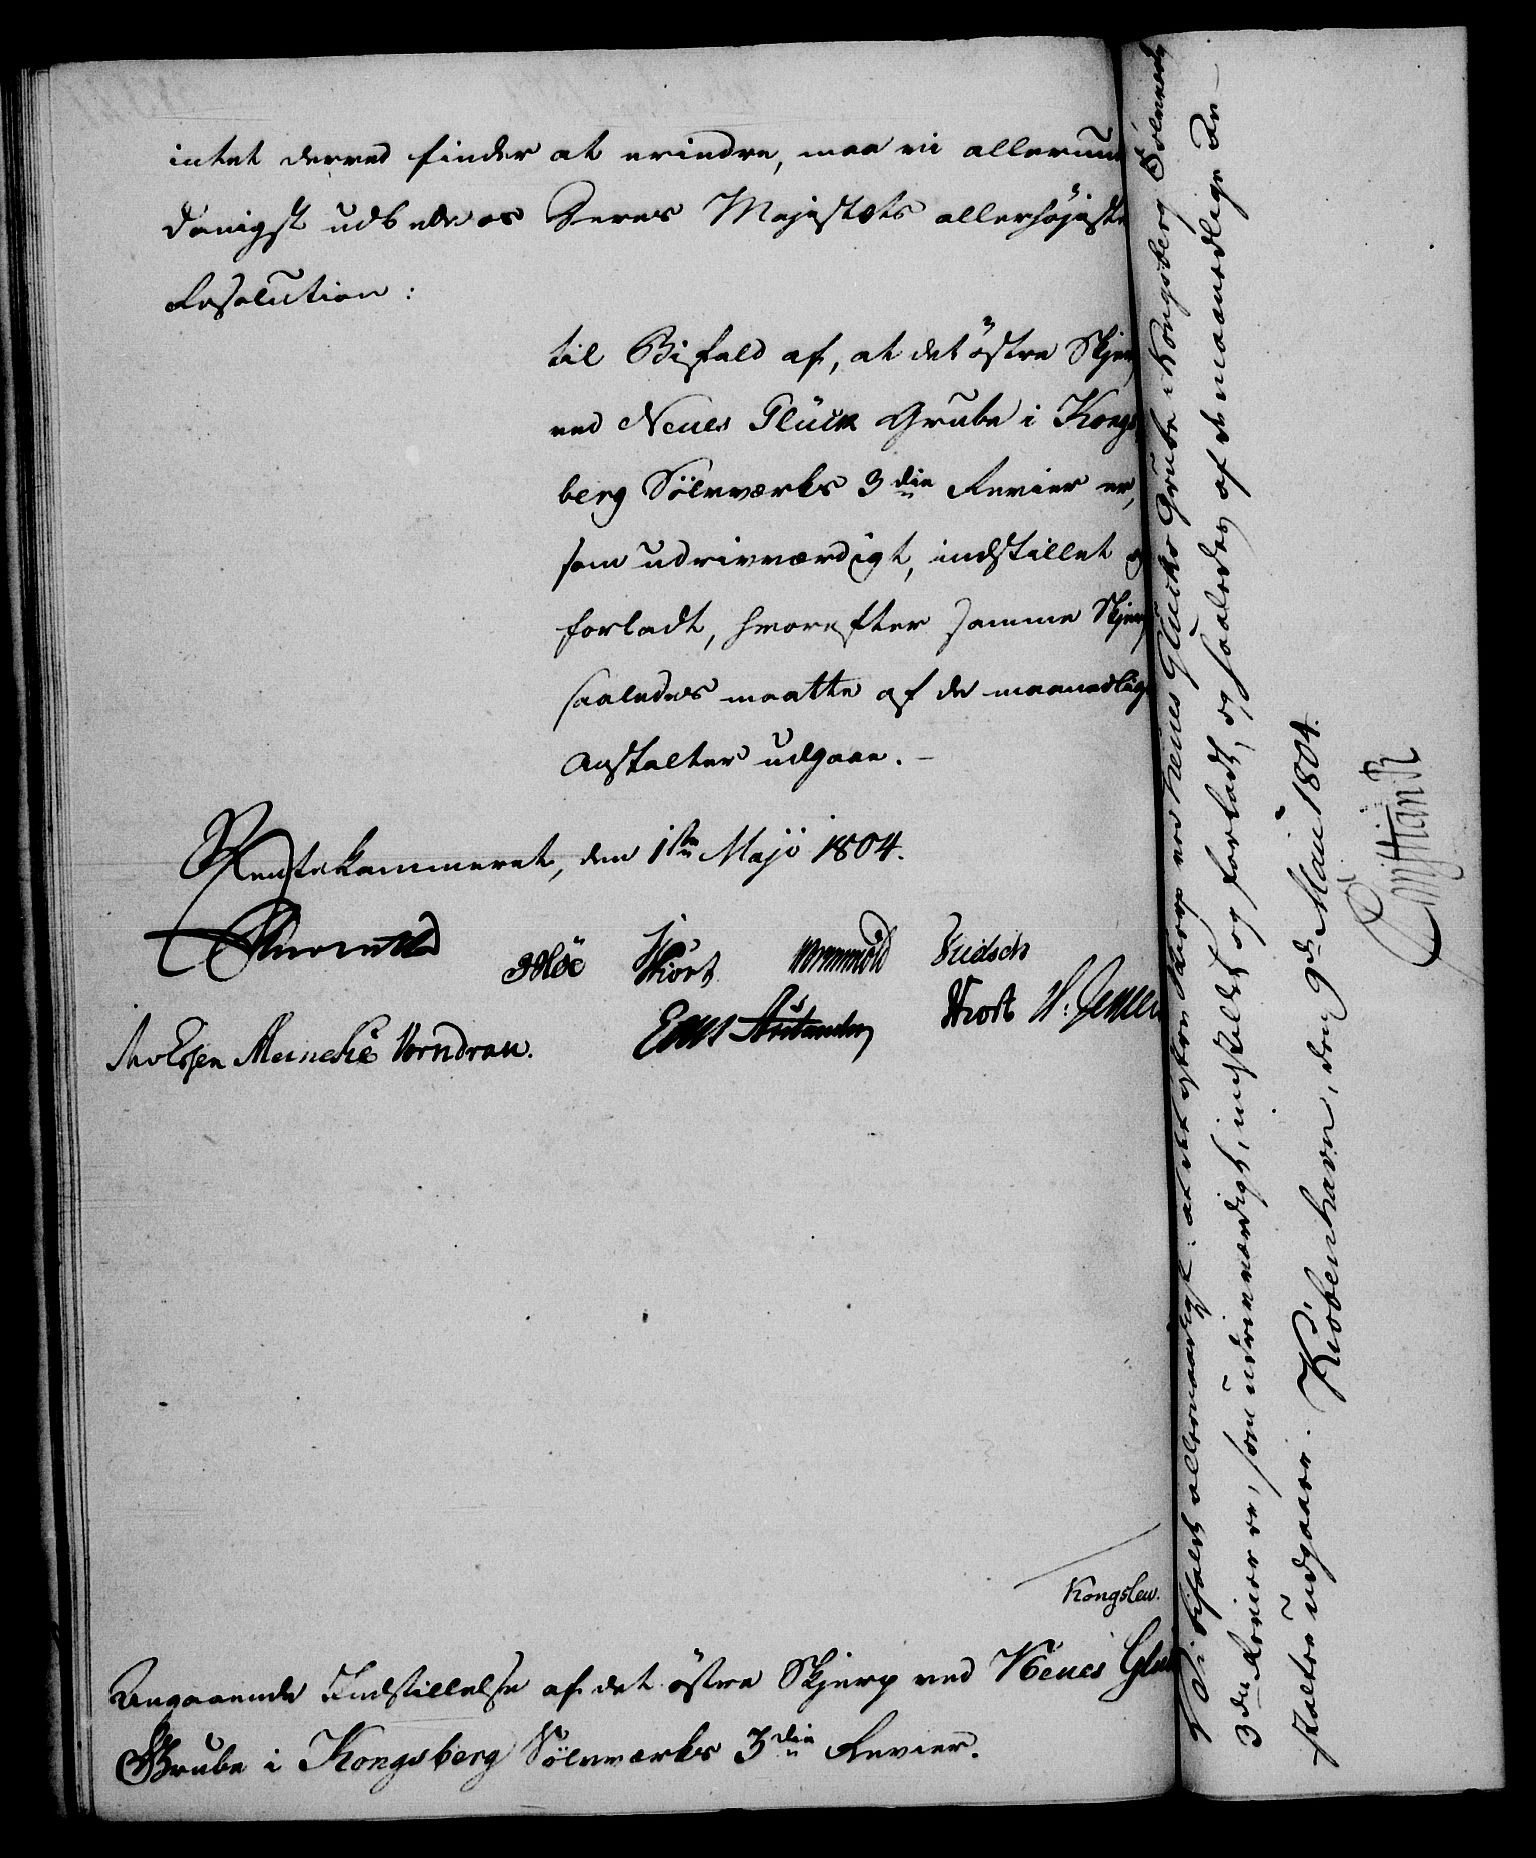 intet derved finder at erindre, maa vi allerun
danigst udbede os Deres Majestæts allerhøjeste
Resolution:
til Bifald af, at det östre Skjer
ved Neues Glück Grube i Kongs
berg Sölvværks 3die Revier er,
som udrivværdigt, indstillet o
forladt, hvorefter samme Skjer
saaledes maatte af de maanedlig
Anstalter udgaae. –
Rentekammeret, den 1ste Maji 1804.
Moe Hiort Wormskiold
Meinche Vorndran. Knoft H. Jensen
Kongslew.
Angaaende Indstillelse af det östre Skjerp ved Neues Glü
Grube i Kongsberg Sölvværks 3die Revier.
Vi bifalde allernaadigst: at det östre Skierp ved Neues Glücks Grube i Kongsberg Sölvverks
3die Revier er, som udrivværdigt, indstillet og forladt, og saaledes af de maanedlige An-
stalter udgaaer. Kiöbenhavn, den 9de Maii 1804.
Christian R